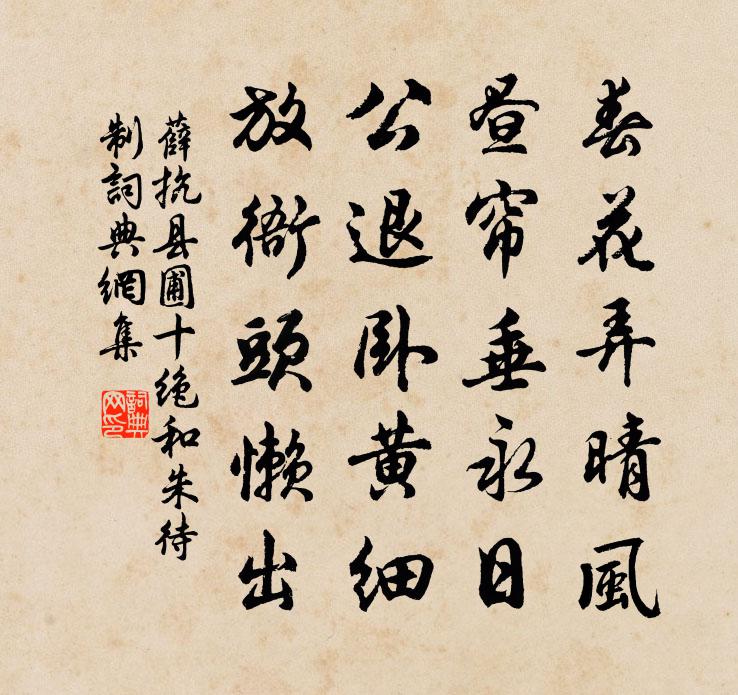 春花弄晴風
昼帘垂永日
公退卧黄細
放衙頭懶出
薛抗县圃十绝和朱待
制詞典網集
詞典
网印